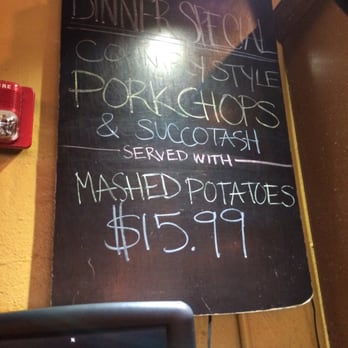 DINNER SPECIAL
COUNTRY STYLE
PORK CHOPS
& SUCCOTASH
SERVED WITH
MASHED POTATOES
$15.99